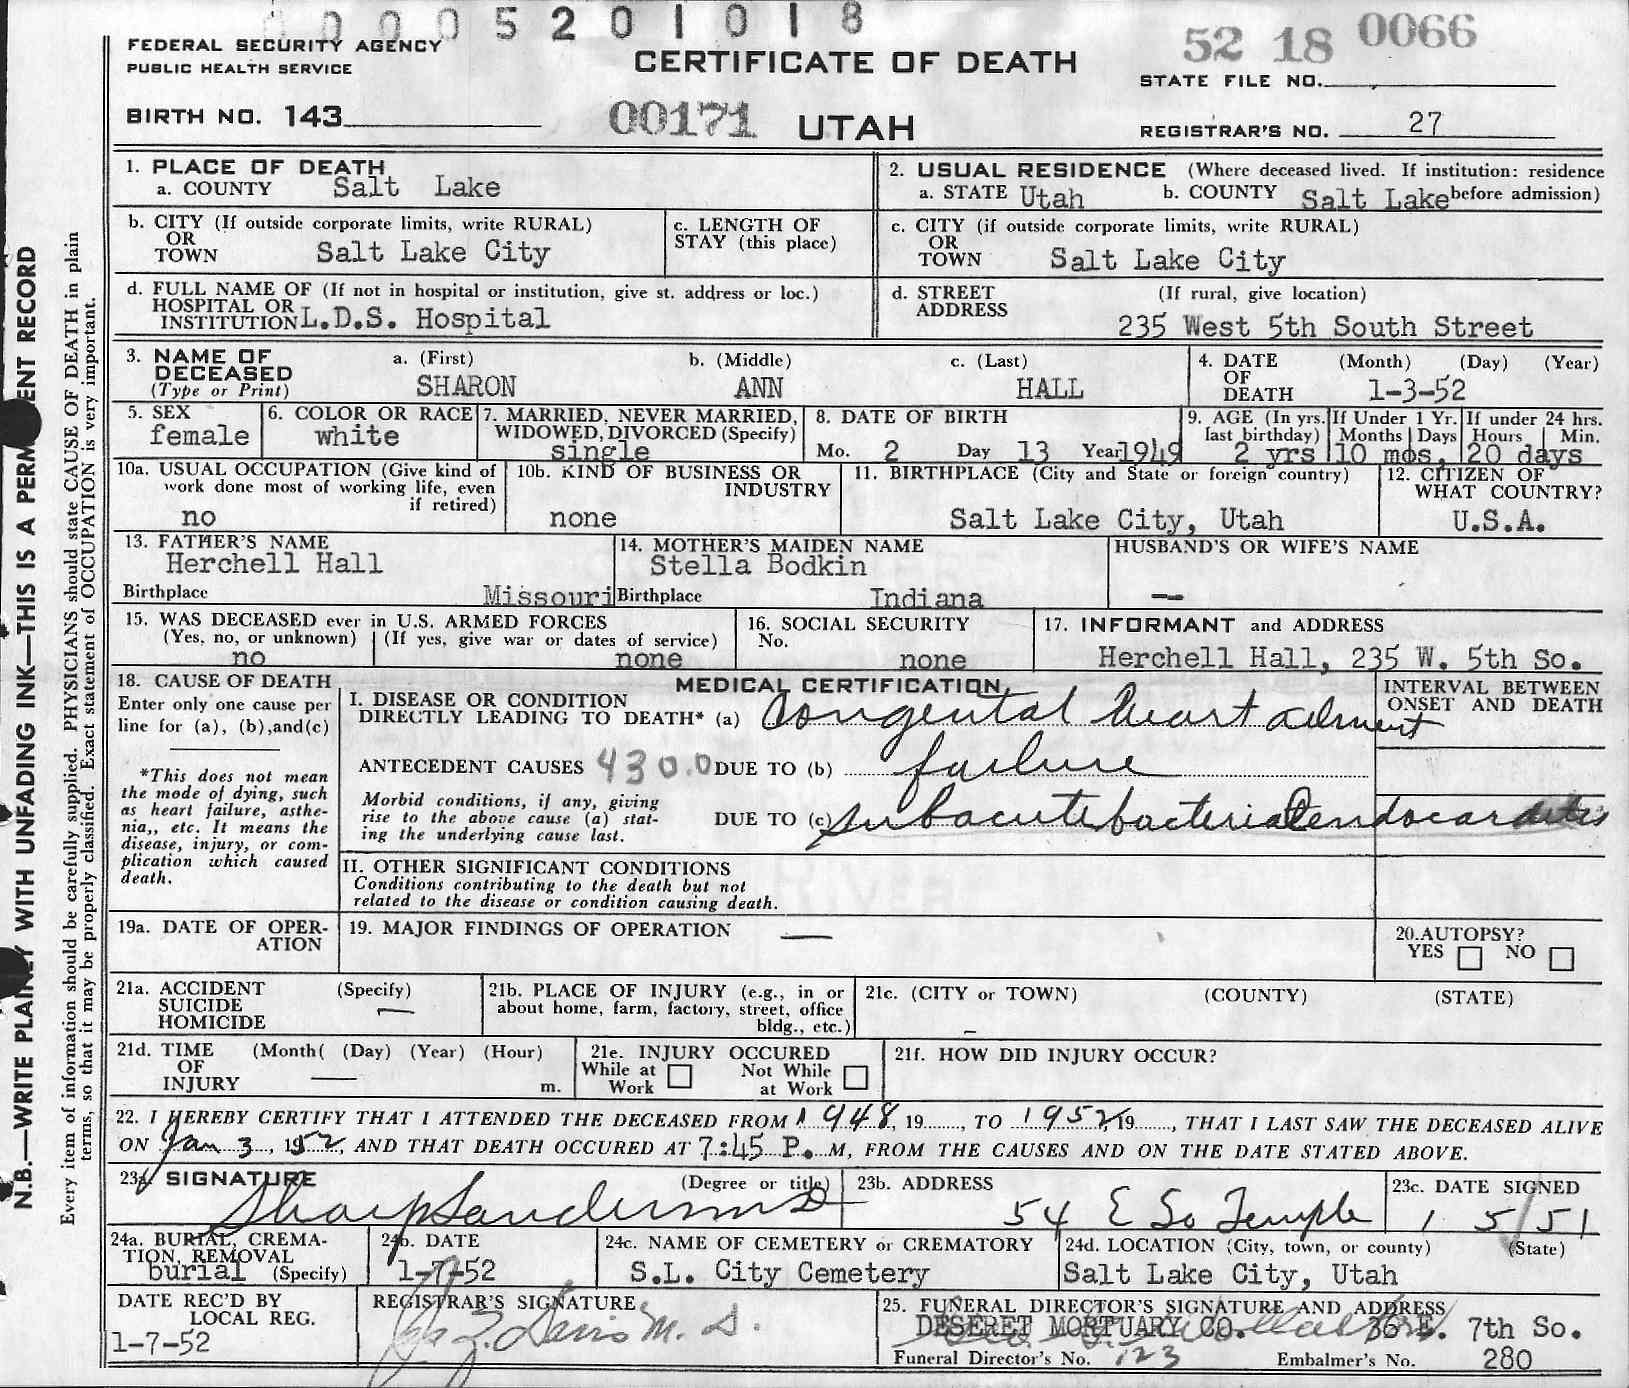 00005201018
FEDERAL SECURITY AGENCY
PUBLIC HEALTH SERVICE
CERTIFICATE OF DEATH
52 18 0066
STATE FILE NO.
BIRTH NO. 143
00171 UTAH
REGISTRAR'S NO. 27
1. PLACE OF DEATH
a. COUNTY Salt Lake
2. USUAL RESIDENCE (Where deceased lived. If institution: residence
a. STATE Utah b. COUNTY Salt Lake before admission)
b. CITY (If outside corporate limits, write RURAL)
OR
TOWN Salt Lake City
c. LENGTH OF
STAY (this place)
c. CITY (if outside corporate limits, write RURAL)
OR
TOWN Salt Lake City
d. FULL NAME OF (If not in hospital or institution, give st. address or loc.)
HOSPITAL OR
INSTITUTION L.D.S. Hospital
d. STREET (If rural, give location)
ADDRESS
235 West 5th South Street
3. NAME OF
DECEASED
(Type or Print)
a. (First) b. (Middle) c. (Last)
SHARON ANN HALL
4. DATE (Month) (Day) (Year)
OF
DEATH 1-3-52
5. SEX
female
6. COLOR OR RACE
white
7. MARRIED, NEVER MARRIED,
WIDOWED, DIVORCED (Specify)
single
8. DATE OF BIRTH
Mo. 2 Day 13 Year 1949
9. AGE (In yrs.
last birthday)
2 yrs
If Under 1 Yr.
Months Days
10 mos.
If under 24 hrs.
Hours Min.
20 days
10a. USUAL OCCUPATION (Give kind of
work done most of working life, even
if retired)
no
10b. KIND OF BUSINESS OR
INDUSTRY
none
11. BIRTHPLACE (City and State or foreign country)
Salt Lake City, Utah
12. CITIZEN OF
WHAT COUNTRY?
U.S.A.
13. FATHER'S NAME
Herchell Hall
Birthplace Missouri
14. MOTHER'S MAIDEN NAME
Stella Bodkin
Birthplace Indiana
HUSBAND'S OR WIFE'S NAME
--
15. WAS DECEASED ever in U.S. ARMED FORCES
(Yes, no, or unknown) (If yes, give war or dates of service)
no none
16. SOCIAL SECURITY
No.
none
17. INFORMANT and ADDRESS
Herchell Hall, 235 W. 5th So.
18. CAUSE OF DEATH
Enter only one cause per
line for (a), (b), and (c)
*This does not mean
the mode of dying, such
as heart failure, asthe-
nia,, etc. It means the
disease, injury, or com-
plication which caused
death.
MEDICAL CERTIFICATION
I. DISEASE OR CONDITION
DIRECTLY LEADING TO DEATH* (a) Congental heart ailment
ANTECEDENT CAUSES 430.0 DUE TO (b) failure
Morbid conditions, if any, giving
rise to the above cause (a) stat-
ing the underlying cause last.
DUE TO (c) subacute bacterial endocarditis
INTERVAL BETWEEN
ONSET AND DEATH
II. OTHER SIGNIFICANT CONDITIONS
Conditions contributing to the death but not
related to the disease or condition causing death.
19a. DATE OF OPER-
ATION
19. MAJOR FINDINGS OF OPERATION —
20. AUTOPSY?
YES NO
21a. ACCIDENT (Specify)
SUICIDE —
HOMICIDE
21b. PLACE OF INJURY (e.g., in or
about home, farm, factory, street, office
bldg., etc.)
21c. (CITY or TOWN) (COUNTY) (STATE)
–
21d. TIME (Month( (Day) (Year) (Hour)
OF
INJURY — m.
21e. INJURY OCCURED
While at Not While
Work at Work
21f. HOW DID INJURY OCCUR?
22. I HEREBY CERTIFY THAT I ATTENDED THE DECEASED FROM 1948, 19......, TO 1952 19......, THAT I LAST SAW THE DECEASED ALIVE
ON Jan 3, 1952, AND THAT DEATH OCCURED AT 7:45 P. M, FROM THE CAUSES AND ON THE DATE STATED ABOVE.
23a. SIGNATURE (Degree or title)
Sharp Sanders M D
23b. ADDRESS
54 E So Temple
23c. DATE SIGNED
1 5/51
24a. BURIAL, CREMA-
TION, REMOVAL
burial (Specify)
24b. DATE
1-7-52
24c. NAME OF CEMETERY or CREMATORY
S.L. City Cemetery
24d. LOCATION (City, town, or county) (State)
Salt Lake City, Utah
DATE REC'D BY
LOCAL REG.
1-7-52
REGISTRAR'S SIGNATURE
Davis M. D.
25. FUNERAL DIRECTOR'S SIGNATURE AND ADDRESS
DESERET MORTUARY CO. 36 E. 7th So.
Funeral Director's No. 123 Embalmer's No. 280
N.B.—WRITE PLAINLY WITH UNFADING INK—THIS IS A PERMANENT RECORD
Every item of information should be carefully supplied. PHYSICIANS should state CAUSE OF DEATH in plain
terms, so that it may be properly classified. Exact statement of OCCUPATION is very important.